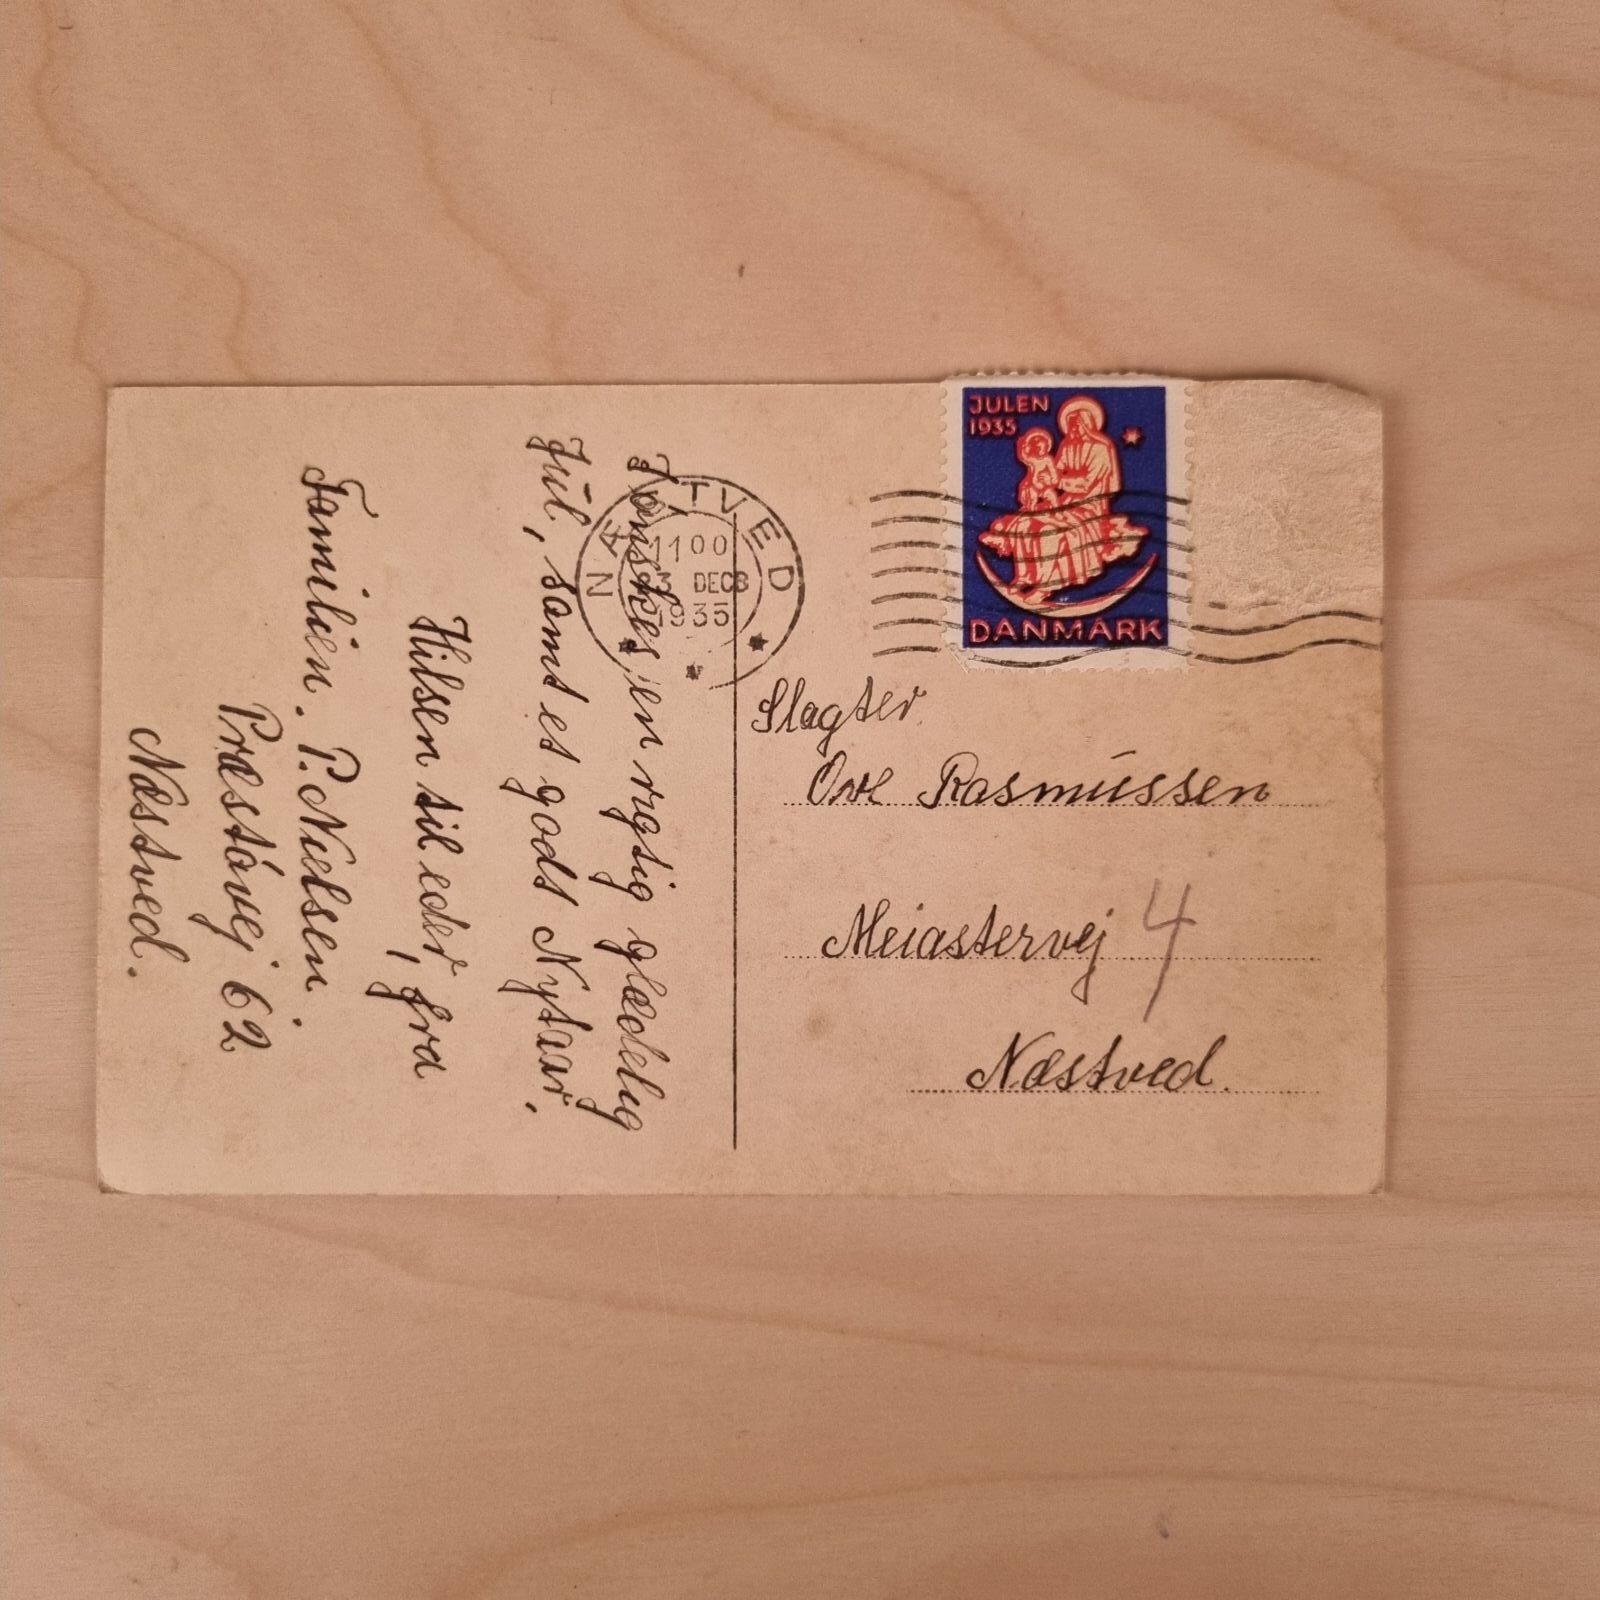 I ønskes en rigtig glædelig
Jul, samt et godt Nytaar.
Hilsen til eder, fra
Familien. P. Nielsen.
Præstøvej 62
Næstved.
NÆSTVED
1100
DEC
1935
JULEN
1935
DANMARK
Slagter
Ove Rasmussen
Meiastervej 4
Næstved.